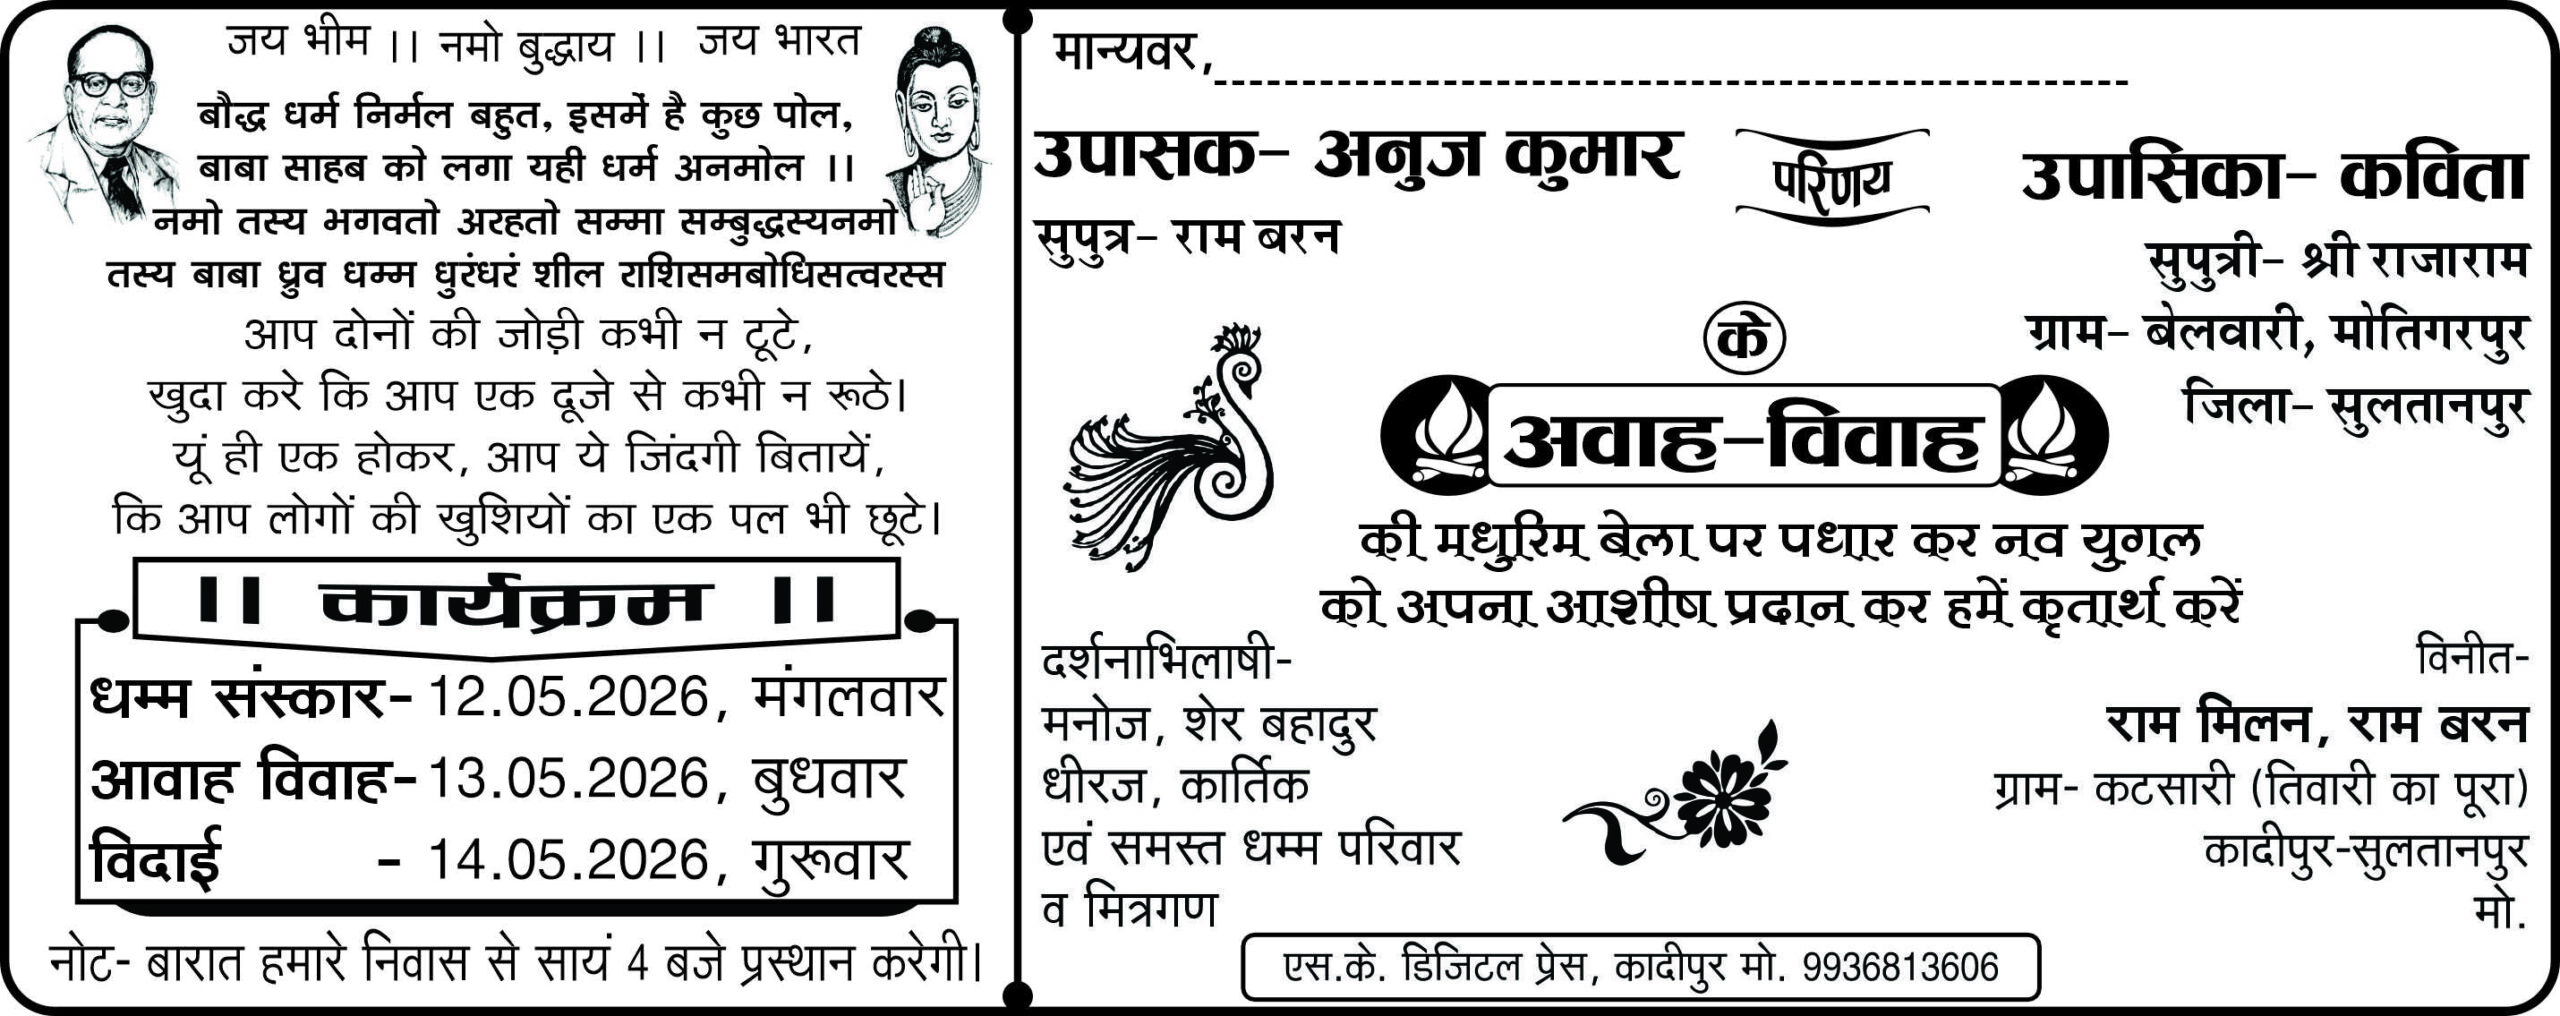 जय भीम ।। नमो बुद्धाय ।। जय भारत
बौद्ध धर्म निर्मल बहुत, इसमें है कुछ पोल,
बाबा साहब को लगा यही धर्म अनमोल ।।
नमो तस्य भगवतो अरहतो सम्मा सम्बुद्धस्यनमो
तस्य बाबा ध्रुव धम्म धुरंधरं शील राशिसमबोधिसत्वरस्स
आप दोनों की जोड़ी कभी न टूटे,
खुदा करे कि आप एक दूजे से कभी न रूठे।
यूं ही एक होकर, आप ये जिंदगी बितायें,
कि आप लोगों की खुशियों का एक पल भी छूटे।
।। कार्यक्रम ।।
धम्म संस्कार- 12.05.2026, मंगलवार
आवाह विवाह- 13.05.2026, बुधवार
विदाई - 14.05.2026, गुरूवार
नोट- बारात हमारे निवास से सायं 4 बजे प्रस्थान करेगी।
मान्यवर,
उपासक- अनुज कुमार
सुपुत्र- राम बरन
परिणय
उपासिका- कविता
सुपुत्री- श्री राजाराम
ग्राम- बेलवारी, मोतिगरपुर
जिला- सुलतानपुर
के
अवाह-विवाह
की मधुरिम बेला पर पधार कर नव युगल
को अपना आशीष प्रदान कर हमें कृतार्थ करें
दर्शनाभिलाषी-
मनोज, शेर बहादुर
धीरज, कार्तिक
एवं समस्त धम्म परिवार
व मित्रगण
विनीत-
राम मिलन, राम बरन
ग्राम- कटसारी (तिवारी का पूरा)
कादीपुर-सुलतानपुर
मो.
एस.के. डिजिटल प्रेस, कादीपुर मो. 9936813606